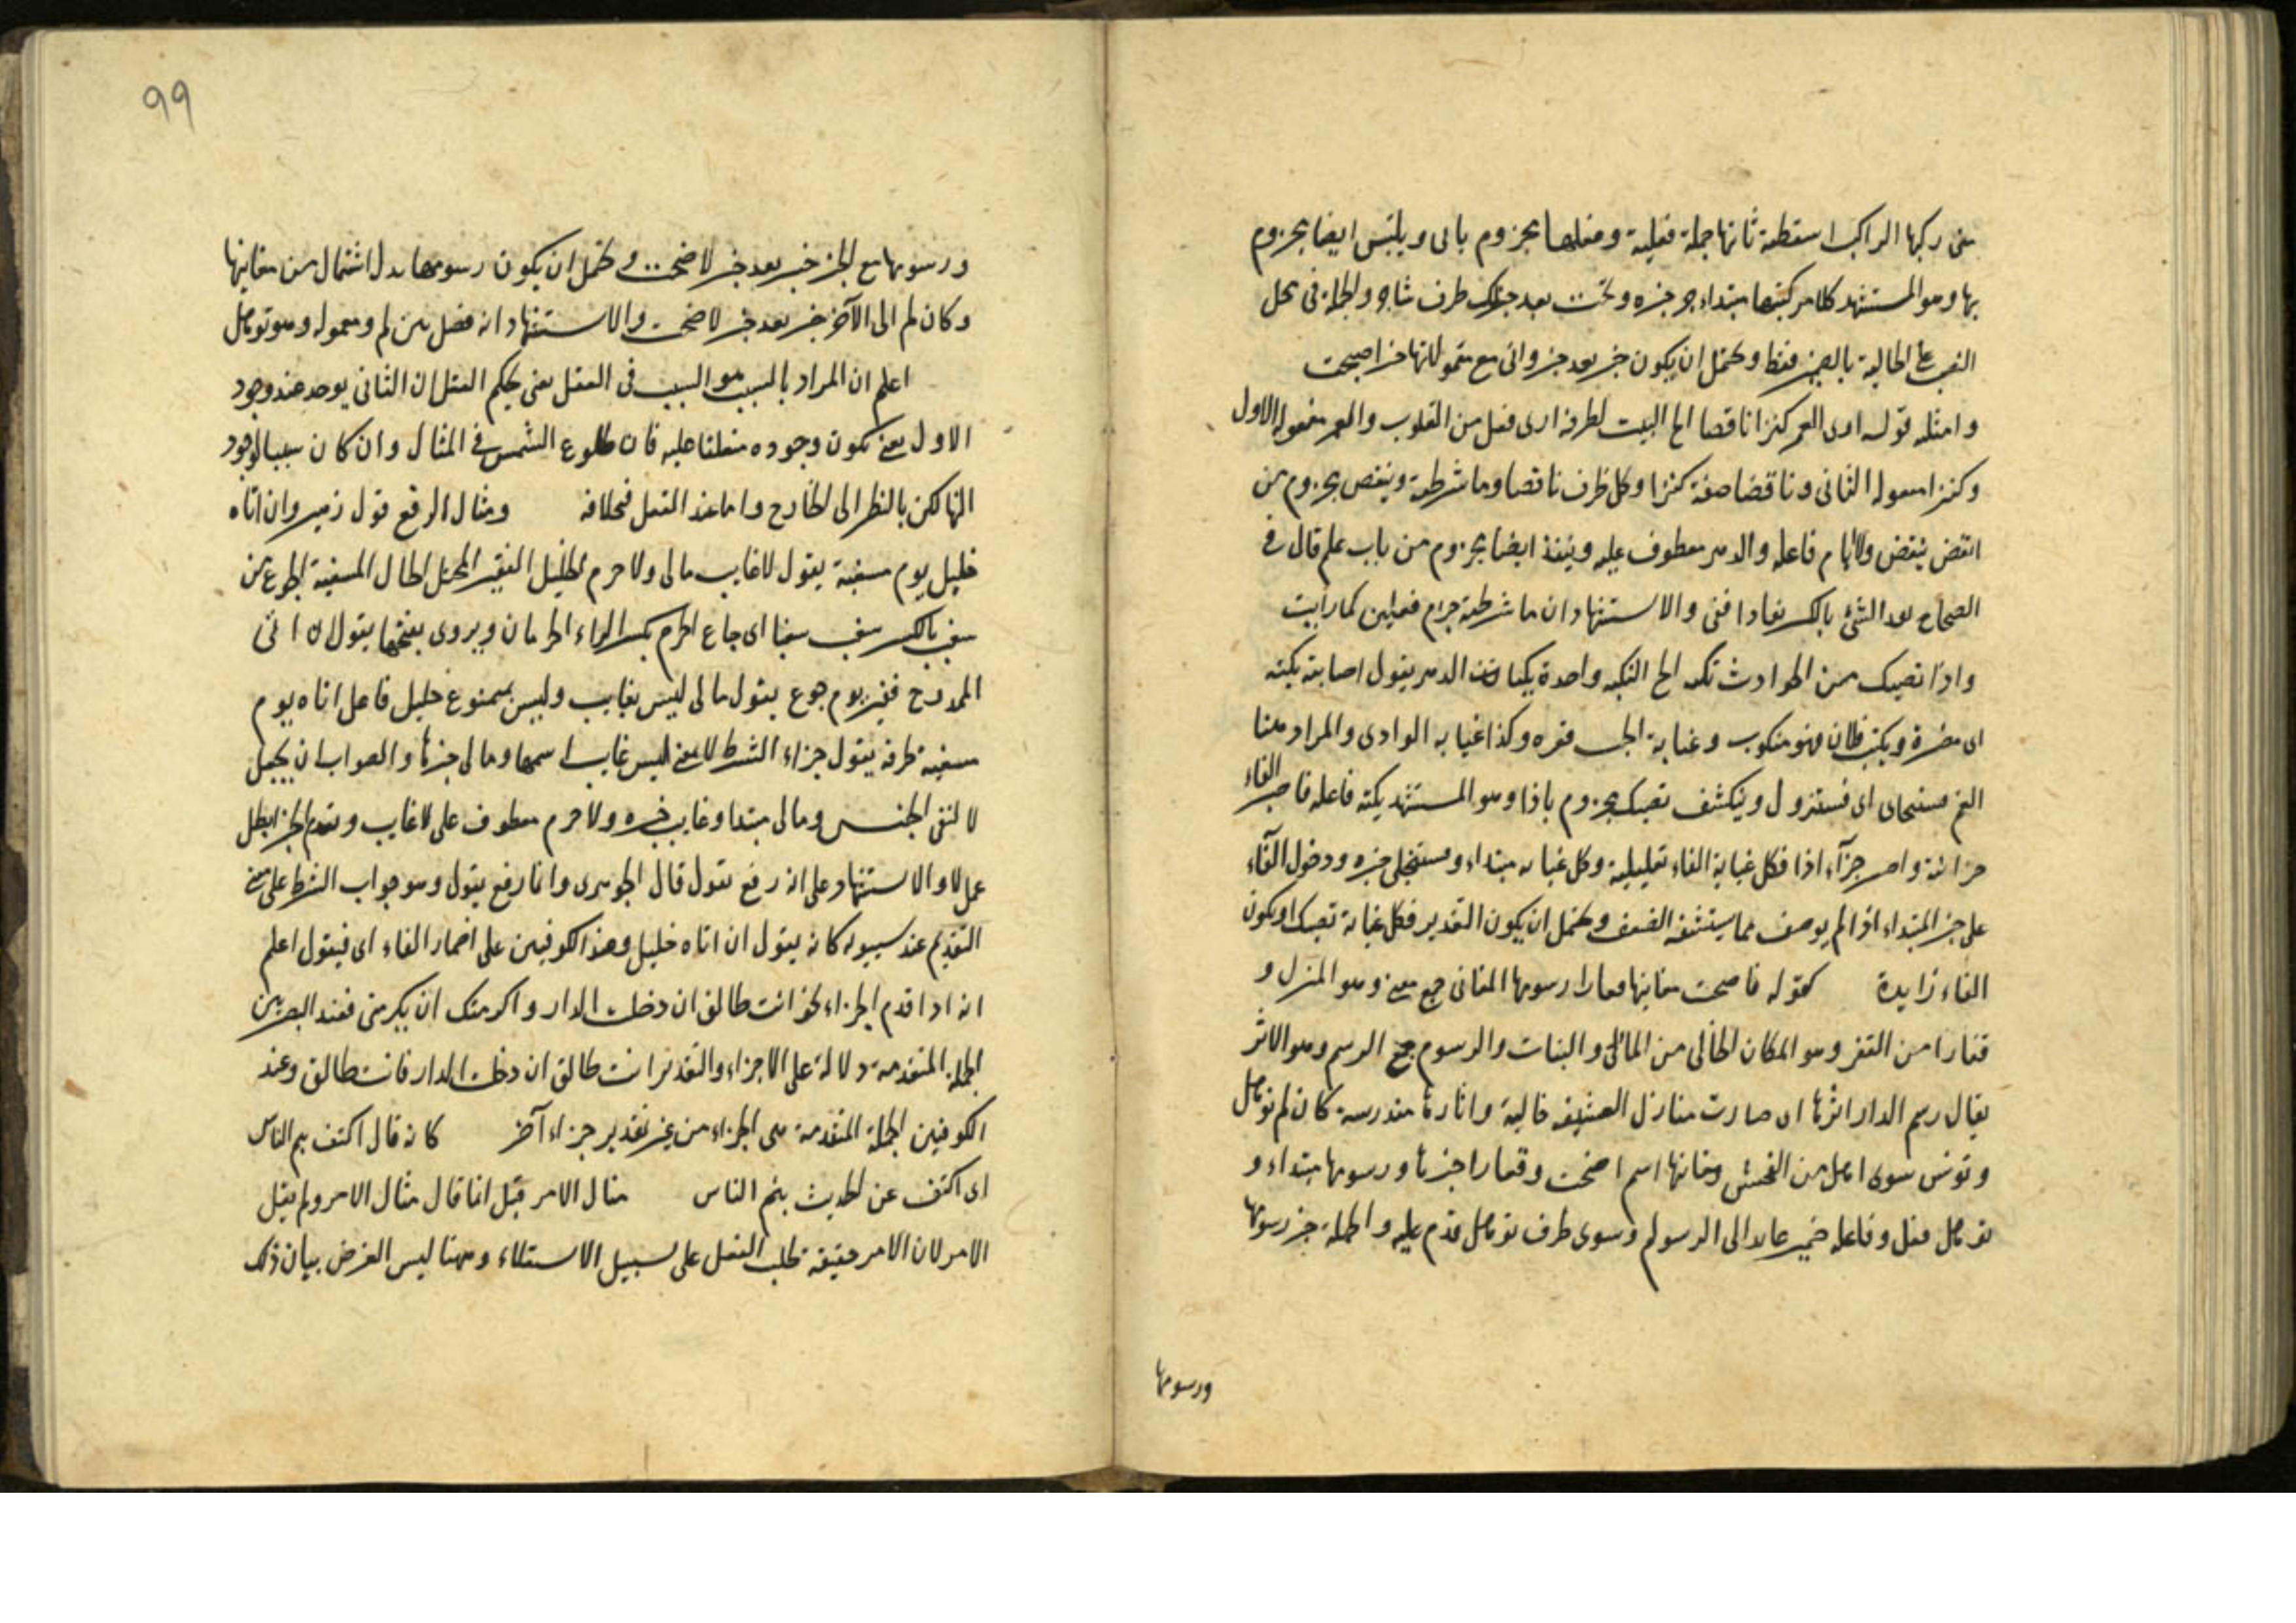 متى ركبها الراكب اسقطته ثانها جملة فعلية وفعلها مجزوم بانى ويلتبس ايضا مجزوم
بها وهو المستشهد كلا مركبيها مبتداء خبره وتحت رجلك ظرف شاجر والجملة فى محل
النصب على الحالية بالضمير فقط ويحتمل ان يكون خبر بعد خبر وانى مع معمولاتها خبر اصبحت
وامثله قوله ارى العمر كنزا ناقصا الخ البيت لطرفة ارى فعل من القلوب والعمر مفعوله الاول
وكنزا مفعوله الثانى وناقصا صفة كنزا وكل ظرف ناقصا وما شرطية وينقص مجزوم من
انقص ينقص والايام فاعله والدهر معطوف عليه وينفد ايضا مجزوم من باب علم قال فى
الصحاح نفد الشئ بالكسر نفادا فنى والاستشهاد ان ما شرطية جزم فعلين كما رايت
واذا تصبك من الحوادث نكبة الخ النكبة واحدة نكبات الدهر يقول اصابته نكبة
اى مضرة ونكب فلان فهو منكوب وغيابة الجب قعره وكذا غيابة الوادى والمراد هنا
الغم فستنجلى اى فستزول وتنكشف تصبك مجزوم باذا وهو المستشهد نكبة فاعله فاصبر الفاء
جزائية واصبر جزآء اذا فكل غيابة الفاء تعليلية وكل غيابة مبتداء وستنجلى خبره ودخول الفآء
على خبر المبتداء اذا لم يوصف مما يستثقله الضعف ويحتمل ان يكون التقدير فكل غيابة تصبك او يكون
الفاء زايدة كقوله فاصحت مغانيها قفارا رسومها المغانى جمع مغنى وهو المنزل و
قفارا من القفر وهو المكان الخالى من المآء والنبات والرسوم جمع الرسم وهو الاثر
يقال رسم الدار اثرها اى صارت منازل العشيقة خالية واثارها مندرسة كان لم تؤهل
وتونس سوى اهل من الوحش ومغانيها اسم اضحت وقفارا خبرها ورسومها مبتداء و
تؤهل فعل وفاعله ضمير عايد الى الرسوم وسوى ظرف تؤهل قدم عليه والجملة خبر رسومها
ورسومها
99
ورسومها مع الخبر خبر بعد خبر لاضحت ويحتمل ان يكون رسومها بدل اشتمال من مغانيها
وكان لم الى الآخر خبر بعد خبر لاضحت والاستشهاد انه فصل بين لم ومعموله وهو تؤهل
اعلم ان المراد بالسبب هو السبب فى العقل يعنى يحكم العقل ان الثانى يوجد عند وجود
الاول يعنى يكون وجوده متعلقا عليه فان طلوع الشمس فى المثال وان كان سببا لوجود
النهار لكن بالنظر الى الخارج واما عند العقل فبخلافه ومثال الرفع قول زهير وان اتاه
خليل يوم مسغبة يقول لا غايب مالى ولا حرم الخليل الفقير المختل الحال المسغبة الجوع من
سغب بالكسر سغب سغبا اى جاع الحرم بكسر الراء الحرمان ويروى بفتحها يقول ان اتى
الممدوح فقير يوم جوع يقول مالى ليس بغايب وليس بممنوع خليل فاعل اتاه يوم
مسغبة ظرفه يقول جزاء الشرط لا بمعنى ليس غايب اسمها ومالى خبرها والصواب ان يجعل
لا لنفى الجنس ومالى مبتدا وغايب خبره ولا حرم معطوف على لا غايب وتقدم الخبر ابطل
عمل لا والاستشهاد على انه رفع يقول قال الجوهرى وانما رفع يقول وهو جواب الشرط على معنى
التقديم عند سيبويه كانه يقول ان اتاه خليل وعند الكوفيين على اضمار الفاء اى فيقول اعلم
انه اذا قدم الجزاء نحو انت طالق ان دخلت الدار واكرمتك ان تكرمنى فعند البصريين
الجملة المتقدمة دلالة على الاجزاء والتقدير انت طالق ان دخلت الدار فانت طالق وعند
الكوفيين الجملة المتقدمة هى الجزاء من غير تقدير جزاء آخر كانه قال اكتف ينم الناس
اى اكتف عن الحديث ينم الناس مثال الامر قيل انما قال مثال الامر ولم يقل
الامر لان الامر حقيقة طلب الفعل على سبيل الاستعلاء وههنا ليس الغرض بيان ذلك